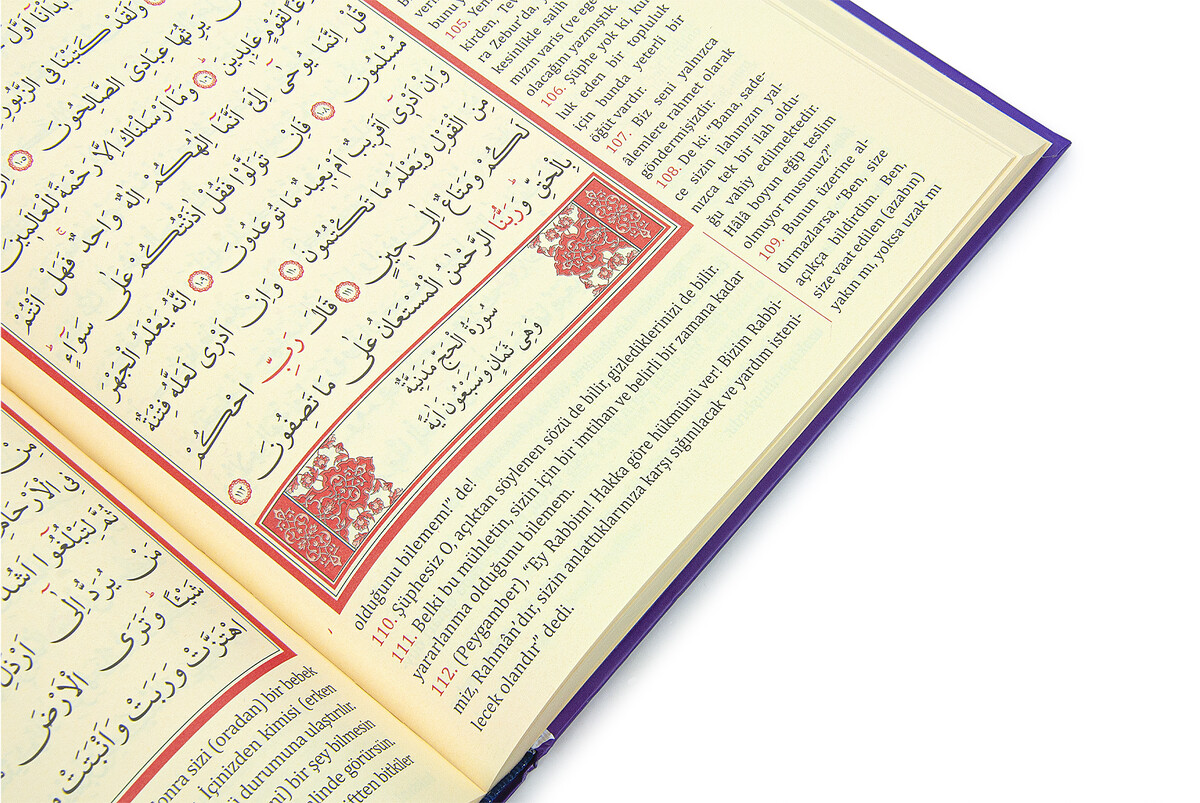 وَلَقَدْ كَتَبْنَا فِى الزَّبُورِ
يَرِثُهَا عِبَادِىَ الصَّالِحُونَ ﴿١٠٥﴾
لِقَوْمٍ عَابِدِينَ ﴿١٠٦﴾ وَمَٓا اَرْسَلْنَاكَ اِلَّا رَحْمَةً لِلْعَالَمِينَ
قُلْ اِنَّمَا يُوحٰٓى اِلَىَّ اَنَّمَٓا اِلٰهُكُمْ اِلٰهٌ وَاحِدٌ فَهَلْ اَنْتُمْ
مُسْلِمُونَ ﴿١٠٨﴾ فَاِنْ تَوَلَّوْا فَقُلْ اٰذَنْتُكُمْ عَلٰى سَوَٓاءٍ
وَاِنْ اَدْرٰٓى اَقَرِيبٌ اَمْ بَعِيدٌ مَا تُوعَدُونَ ﴿١٠٩﴾ اِنَّهُ يَعْلَمُ الْجَهْرَ
مِنَ الْقَوْلِ وَيَعْلَمُ مَا تَكْتُمُونَ ﴿١١٠﴾ وَاِنْ اَدْرٰى لَعَلَّهُ فِتْنَةٌ
لَكُمْ وَمَتَاعٌ اِلٰى حِينٍ ﴿١١١﴾ قَالَ رَبِّ احْكُمْ
بِالْحَقِّ وَرَبُّنَا الرَّحْمٰنُ الْمُسْتَعَانُ عَلٰى مَا تَصِفُونَ ﴿١١٢﴾
سُورَةُ الْحَجِّ مَدَنِيَّةٌ
وَهِىَ ثَمَانٍ وَسَبْعُونَ اٰيَةً
bunu y
105. Yem
kirden, Tev
ra Zebur'da, y
kesinlikle salih
mızın varis (ve ege
olacağını yazmıştık
106. Şüphe yok ki, kul
luk eden bir topluluk
için bunda yeterli bir
öğüt vardır.
107. Biz seni yalnızca
âlemlere rahmet olarak
göndermişizdir.
108. De ki: "Bana, sade-
ce sizin ilahınızın yal-
nızca tek bir ilah oldu-
ğu vahiy edilmektedir.
Hâlâ boyun eğip teslim
olmuyor musunuz?"
109. Bunun üzerine al-
dırmazlarsa, "Ben, size
açıkça bildirdim. Ben,
size vaat edilen (azabın)
yakın mı, yoksa uzak mı
olduğunu bilemem!" de!
110. Şüphesiz O, açıktan söylenen sözü de bilir, gizlediklerinizi de bilir.
111. Belki bu mühletin, sizin için bir imtihan ve belirli bir zamana kadar
yararlanma olduğunu bilemem.
112. (Peygamber), "Ey Rabbim! Hakka göre hükmünü ver! Bizim Rabbi-
miz, Rahmân'dır, sizin anlattıklarınıza karşı sığınılacak ve yardım isteni-
lecek olandır" dedi.
فِى الْاَرْحَامِ
ثُمَّ لِتَبْلُغُٓوا اَشُدَّ
مَنْ يُرَدُّ اِلٰٓى اَرْذَلِ
شَيْـًٔا وَتَرَى الْاَرْضَ
اهْتَزَّتْ وَرَبَتْ وَاَنْبَتَتْ
onra sizi (oradan) bir bebek
. İçinizden kimisi (erken
durumuna ulaştırılır.
mi) bir şey bilmesin
linde görürsün.
iftten bitkiler